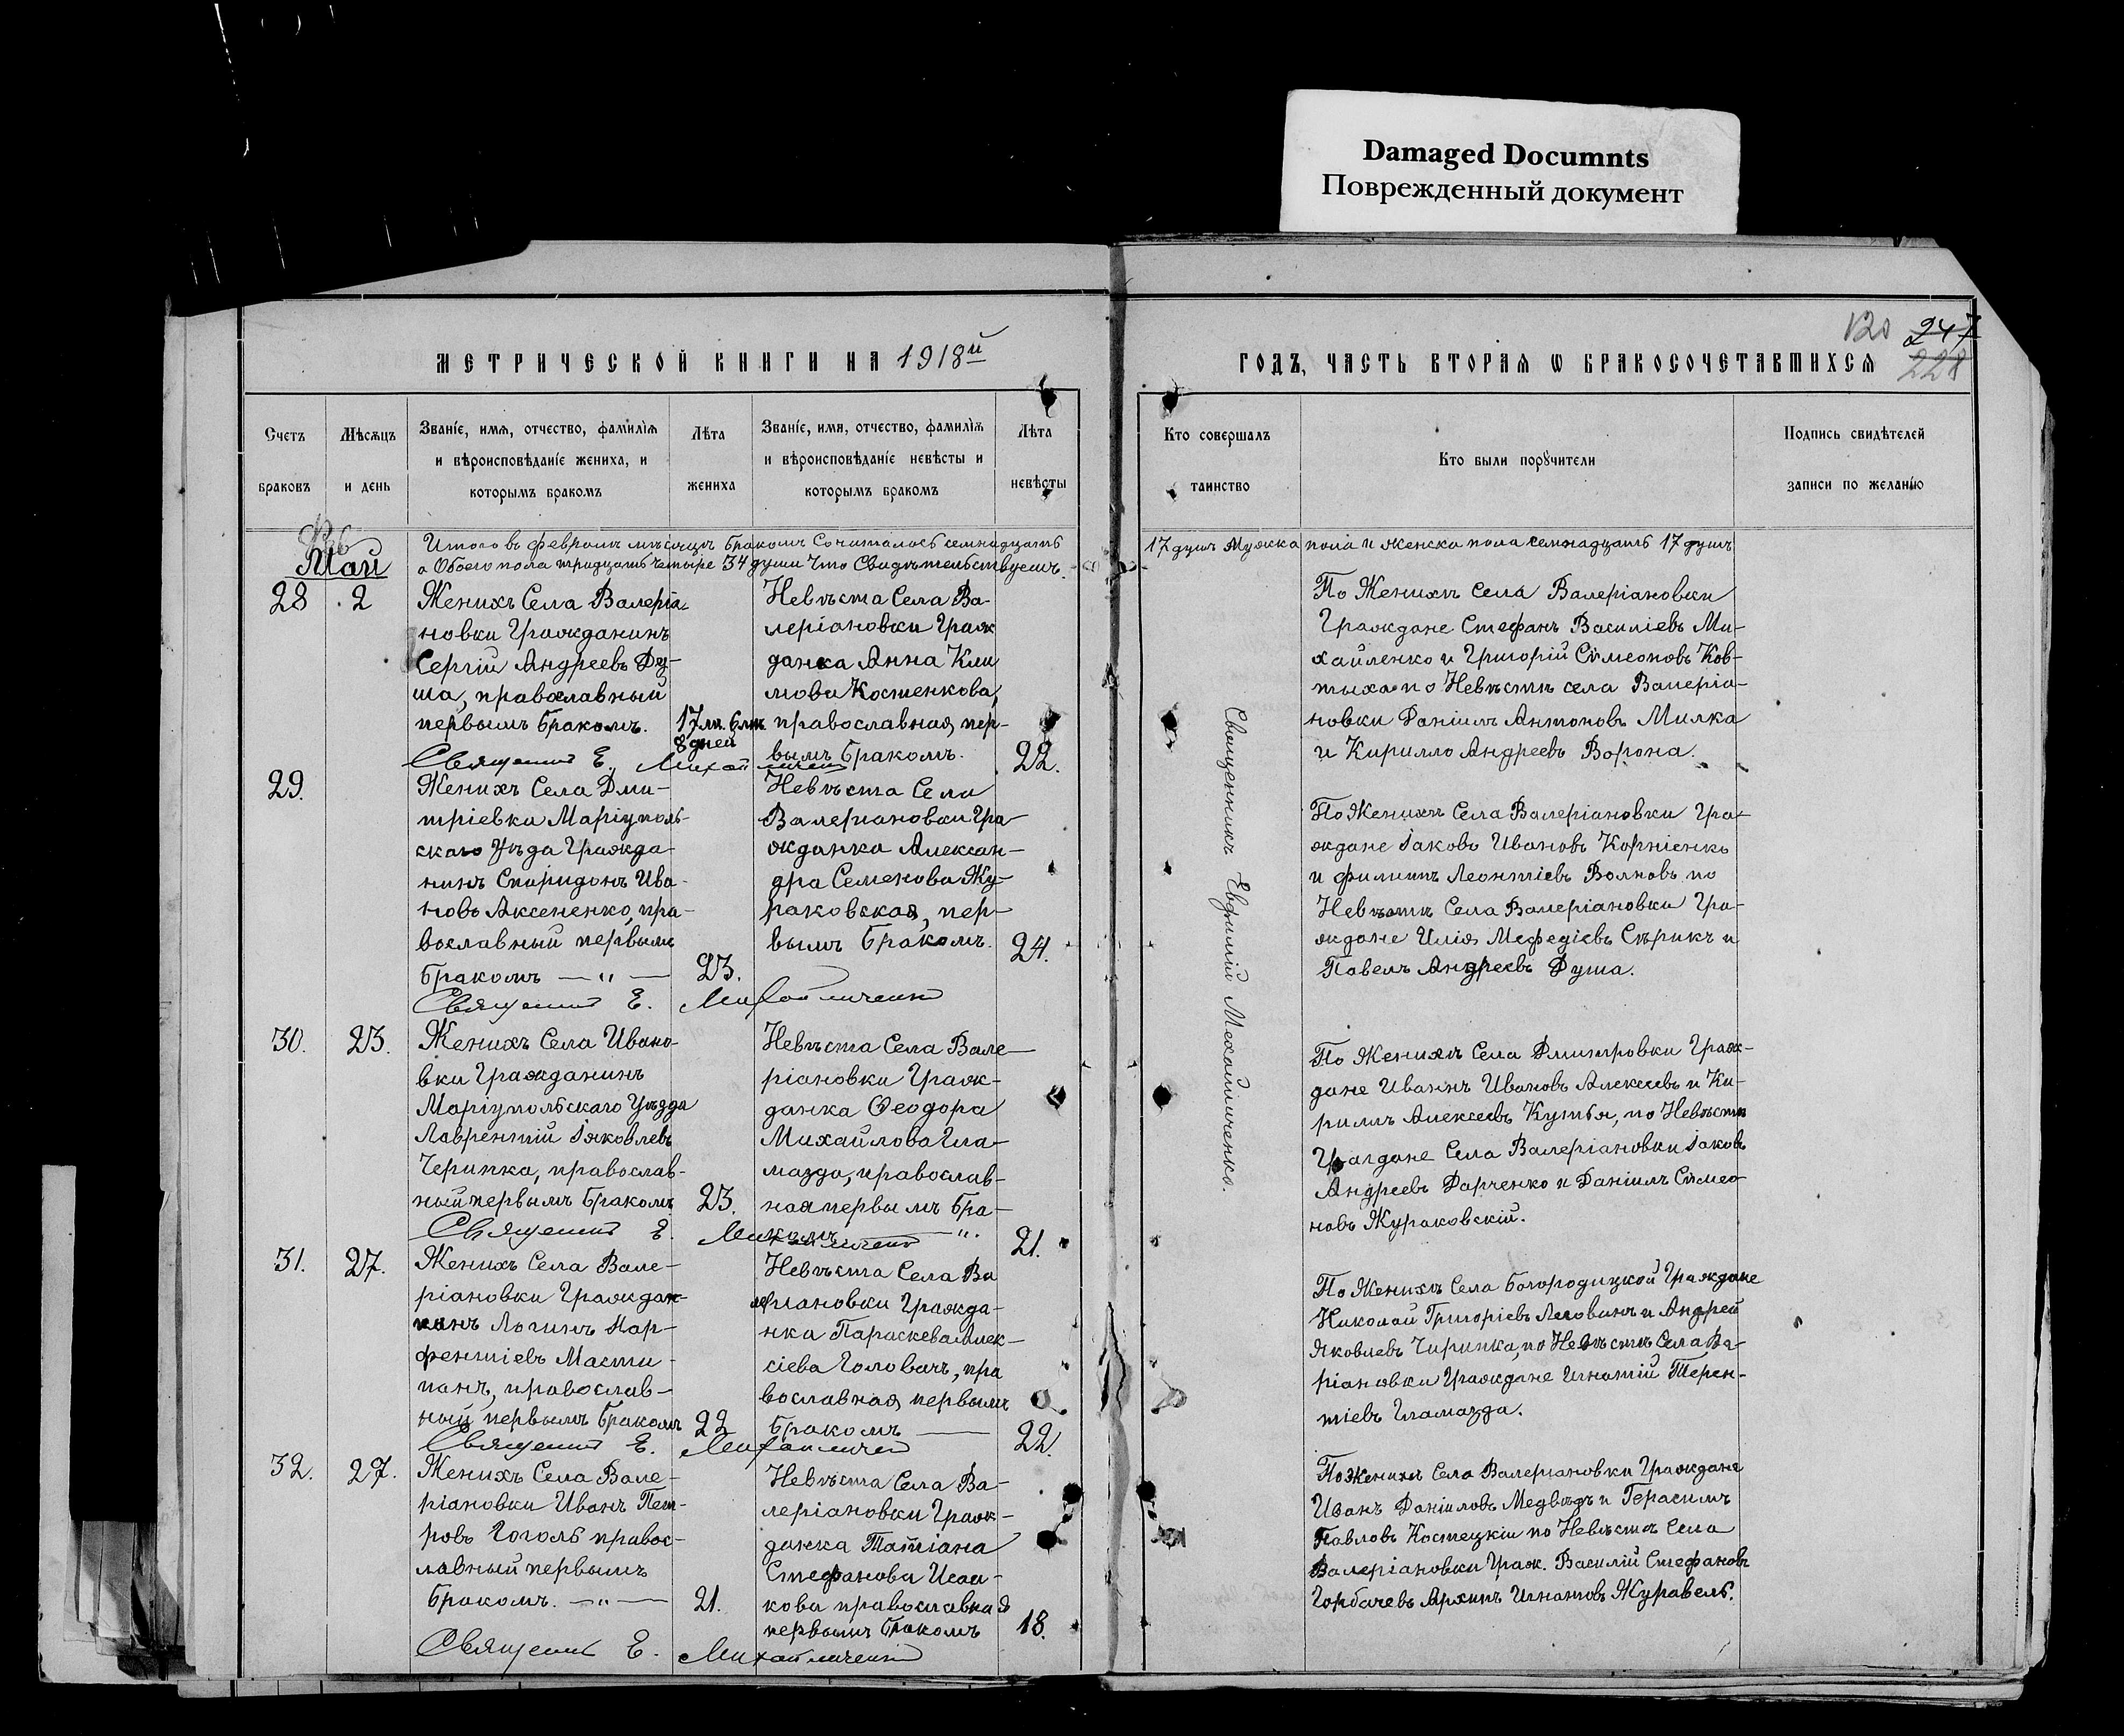 Damaged Documnts
Поврежденный документ
120 247
228
МЕТРИЧЕСКОЙ КНИГИ НА 1918й
ГОДЪ, ЧАСТЬ ВТОРАЯ Ѡ БРАКОСОЧЕТАВШИХСЯ
Счетъ браковъ
Мѣсяцъ и день
Званіе, имя, отчество, фамилія
и вѣроисповѣданіе жениха, и
которымъ бракомъ
Лѣта жениха
Званіе, имя, отчество, фамилія
и вѣроисповѣданіе невѣсты и
которымъ бракомъ
Лѣта невѣсты
Кто совершалъ таинство
Кто были порꙋчители
Подпись свидѣтелей
записи по желанію
Итого въ февралѣ мѣсяцѣ бракомъ сочиталось семнадцать
17 душъ мужска пола и женска пола семнадцать 17 душъ
а обоего пола тридцать четыре 34 души что свидѣтельствуемъ.
Май
28 2
Женихъ Села Валеріа-
новки Гражданинъ
Сергій Андреевъ Ду-
ша, православный
первымъ бракомъ.
17 лѣ. 6 мѣ.
8 дней
Невѣста Села Ва-
леріановки Граж
данка Анна Кли
мова Костенкова,
православная, пер-
вымъ бракомъ.
22.
По Женихѣ села Валеріановки
Граждане Стефанъ Василіевъ Ми-
хайленко и Григорій Сѵмеоновъ Ков-
тыха по Невѣстѣ села Валеріа-
новки Даніилъ Антоновъ Милка
и Кирилло Андреевъ Ворона.
Священник Е. Михайличенко
29.
Женихъ Села Дми-
тріевки Маріуполь-
скаго Уѣзда Гражда-
нинъ Спиридонъ Ива-
новъ Аксененко, пра-
вославный первымъ
бракомъ — " —
23.
Невѣста Села
Валеріановки Гра-
жданка Алексан-
дра Семенова Жу-
раковская, пер-
вымъ бракомъ.
24.
По Женихѣ Села Валеріановки Гра-
ждане Іаковъ Ивановъ Корніенко
и Филиппъ Леонтіевъ Волновъ по
Невѣстѣ Села Валеріановки Гра-
ждане Илія Мефедіевъ Сѣрикъ и
Павелъ Андреевъ Душа.
Священник Е. Михайличенко
30. 23.
Женихъ Села Ивано-
вки Гражданинъ
Маріупольскаго Уѣзда
Лаврентій Іяковлевъ
Черипка, православ-
ный первымъ бракомъ
23.
Невѣста Села Вале-
ріановки Граж-
данка Ѳеодора
Михайлова Гла-
мазда, православ-
ная первымъ бра-
комъ — ".
21.
По Женихѣ Села Дмитровки Граж-
дане Иваннъ Ивановъ Алексеевъ и Ки-
рилъ Алексеевъ Кутья, по Невѣстѣ
Граждане Села Валеріановки Іаковъ
Андреевъ Дарченко и Даніилъ Сѵмео-
новъ Жураковскій.
Священник Е. Михайличенко
31. 27.
Женихъ Села Вале-
ріановки Граждан-
инъ Логинъ Пар-
фентіевъ Масти-
панъ, православ-
ный первымъ бракомъ
22
Невѣста Села Ва
леріановки Гражда-
нка Параскева Алек-
сіева Головачъ, пра
вославная первымъ
бракомъ —
22.
По Женихѣ Села Богородицкой Граждане
Николай Григоріевъ Леговинъ и Андрей
Яковлевъ Чирипка, по Невѣстѣ Села Ва-
ріановки Граждане Игнатій Терен-
тіевъ Гламазда.
Священник Е. Михайличен
32. 27.
Женихъ Села Вале-
ріановки Иванъ Пет-
ровъ Гоголь правос-
лавный первымъ
бракомъ. — " —
21.
Невѣста Села Ва-
леріановки Граж-
данка Татіана
Стефанова Исаи-
кова православная
первымъ бракомъ
18.
По Женихѣ Села Валеріановки Граждане
Иванъ Даніиловъ Медвѣдь и Герасимъ
Павловъ Костецкій по Невѣстѣ Села
Валеріановки Граж. Василій Стефановъ
Горбачевъ Архипъ Игнатовъ Журавель.
Священник Е. Михайличенко
Священникъ Евфимій Михайличенко.